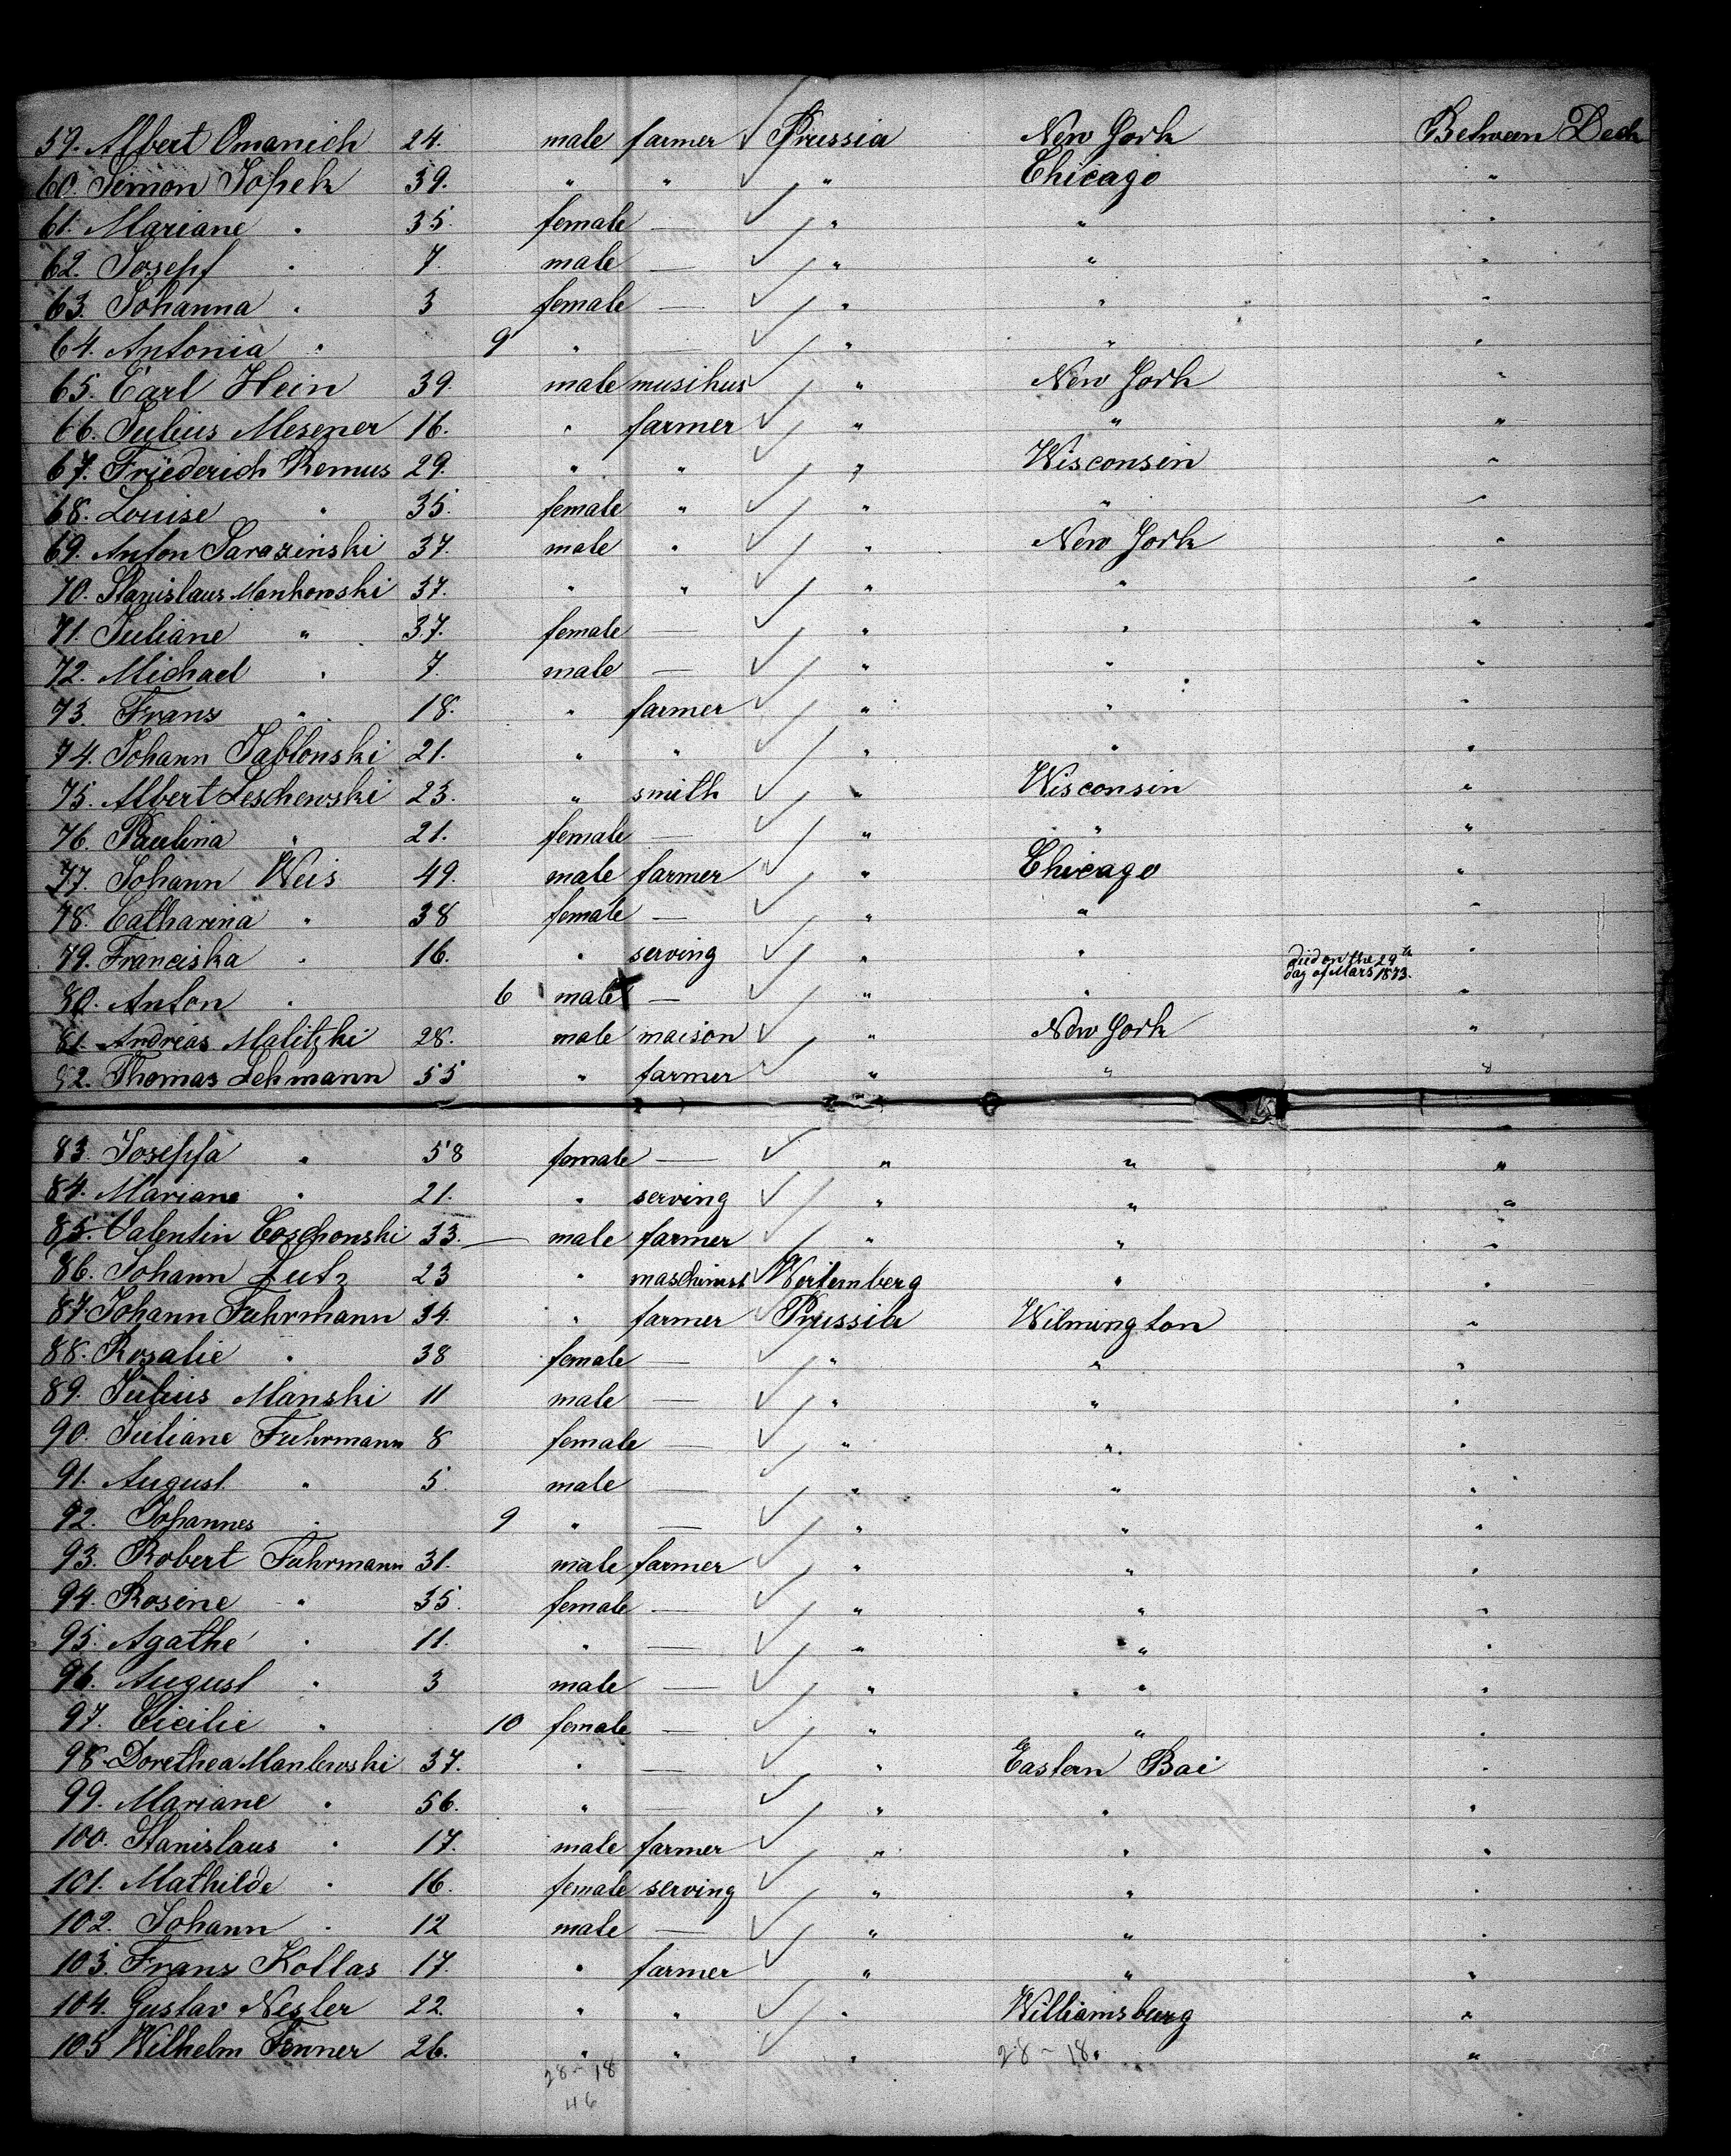 59. Albert Omanich 24. male farmer Prussia New York Between Deck
60. Simon Jopek 39. " " " Chicago "
61. Mariane " 35. female — " " "
62. Josepf " 7. male — " " "
63. Johanna " 3 female — " " "
64. Antonia " 9 " — " " "
65. Carl Hein 39. male musikus " New York "
66. Julius Mesener 16. " farmer " " "
67. Friederich Remus 29. " " " Wisconsin "
68. Louise " 35. female " " " "
69. Anton Sarazinski 37. male " " New York "
70. Stanislaus Mankowski 37. " " " " "
71. Juliane " 37. female — " " "
72. Michael " 7. male — " " "
73. Franz " 18. " farmer " " "
74. Johann Jablonski 21. " " " " "
75. Albert Leschewski 23. " smith " Wisconsin "
76. Paulina " 21. female — " " "
77. Johann Weis 49. male farmer " Chicago "
78. Catharina " 38 female — " " "
79. Franciska " 16. " serving " " "
died on the 29th
day of Mars 1873.
80. Anton " 6 male — " " "
81. Andreas Malitzki 28. male maison " New York "
82. Thomas Lehmann 55 " farmer " " "
83. Joseppa " 58 female — " " "
84. Mariane " 21. " serving " " "
85. Valentin Coschonski 33. — male farmer " " "
86. Johann Lutz 23 " maschinist Wertemberg " "
87. Johann Fuhrmann 34. " farmer Prussia Wilmington "
88. Rosalie " 38 female — " " "
89. Julius Manski 11 male — " " "
90. Juliane Fuhrmann 8 female — " " "
91. August " 5 male — " " "
92. Johannes " 9 " — " " "
93. Robert Fuhrmann 31. male farmer " " "
94. Rosine " 35. female — " " "
95. Agathe " 11. " — " " "
96. August " 3 male — " " "
97. Cicilie " 10 female — " " "
98. Dorethea Manlewski 37. " — " Eastern Bai "
99. Mariane " 56. " — " " "
100. Stanislaus " 17. male farmer " " "
101. Mathilde " 16. female serving " " "
102. Johann " 12 male — " " "
103. Franz Kollas 17. " farmer " " "
104. Gustav Nesler 22. " " " Williamsburg "
105 Wilhelm Fenner 26. " " " " "
28-18 28-18
46